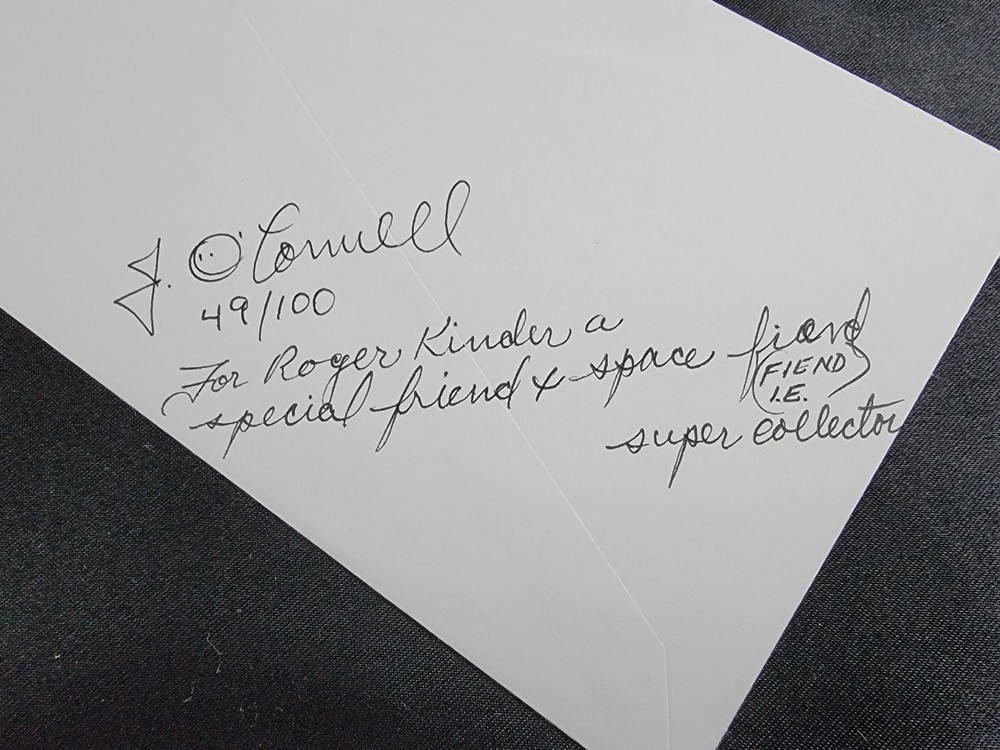 J. O'Connell
49/100
For Roger Kinder a
special friend & space fiend
(FIEND)
I.E.
super collector